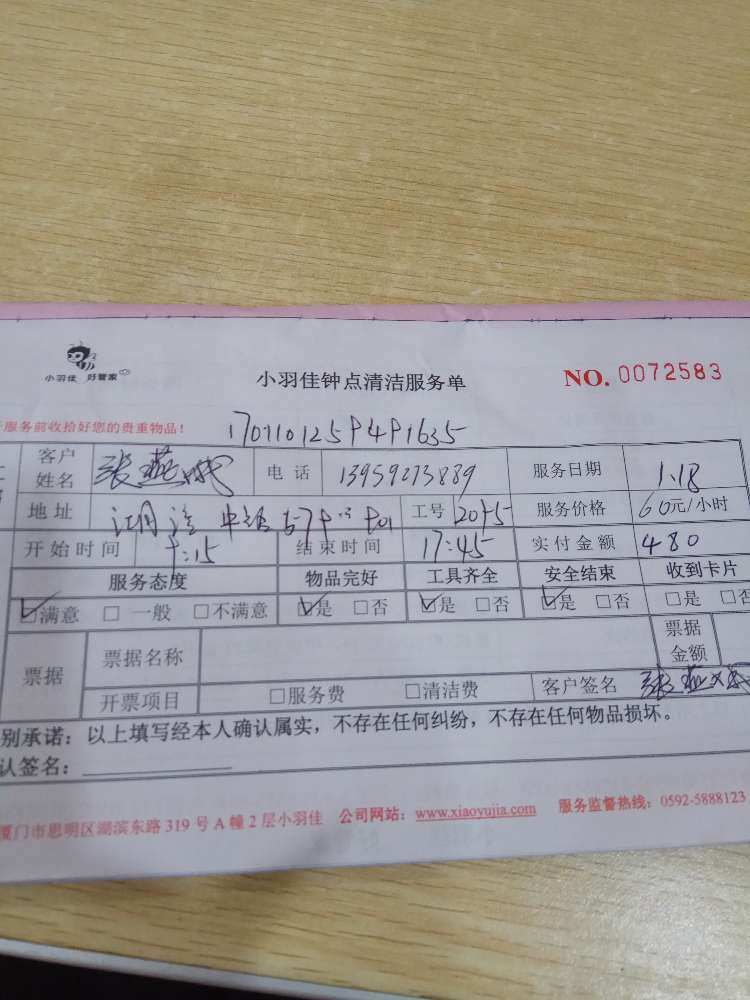 小羽佳 好管家
小羽佳钟点清洁服务单
NO. 0072583
服务前收拾好您的贵重物品!
客户姓名 张燕 电话 服务日期 1.18
地址 工号 服务价格 60元/小时
开始时间 :15 结束时间 17:45 实付金额 480
服务态度 物品完好 工具齐全 安全结束 收到卡片
☑满意 □一般 □不满意 ☑是 □否 ☑是 □否 ☑是 □否 □是 □否
票据 票据名称 票据金额
开票项目 □服务费 □清洁费 客户签名 张燕
别承诺:以上填写经本人确认属实,不存在任何纠纷,不存在任何物品损坏。
认签名:
厦门市思明区湖滨东路 319 号 A 幢 2 层小羽佳 公司网站:www.xiaoyujia.com 服务监督热线:0592-5888123